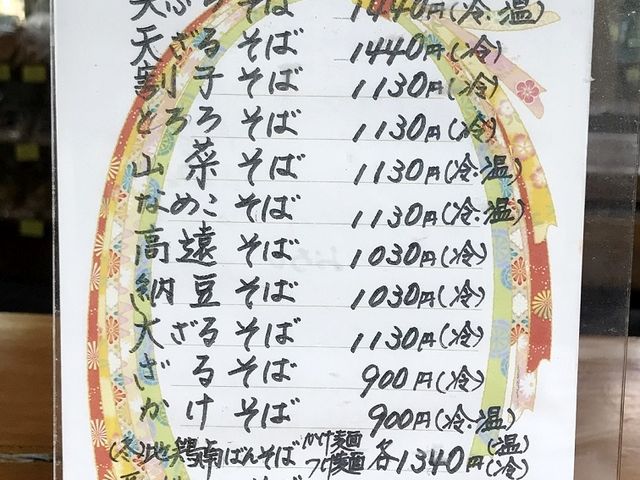 天ぷらそば 1440円(冷・温)
天ざるそば 1440円(冷)
割子そば 1130円(冷)
とろろそば 1130円(冷)
山菜そば 1130円(冷・温)
なめこそば 1130円(冷・温)
高遠そば 1030円(冷)
納豆そば 1030円(冷)
大ざるそば 1130円(冷)
ざるそば 900円(冷)
かけそば 900円(冷・温)
(冬)地鶏南ばんそば かけ麺 つけ麺 各1340円 (温) (冷)